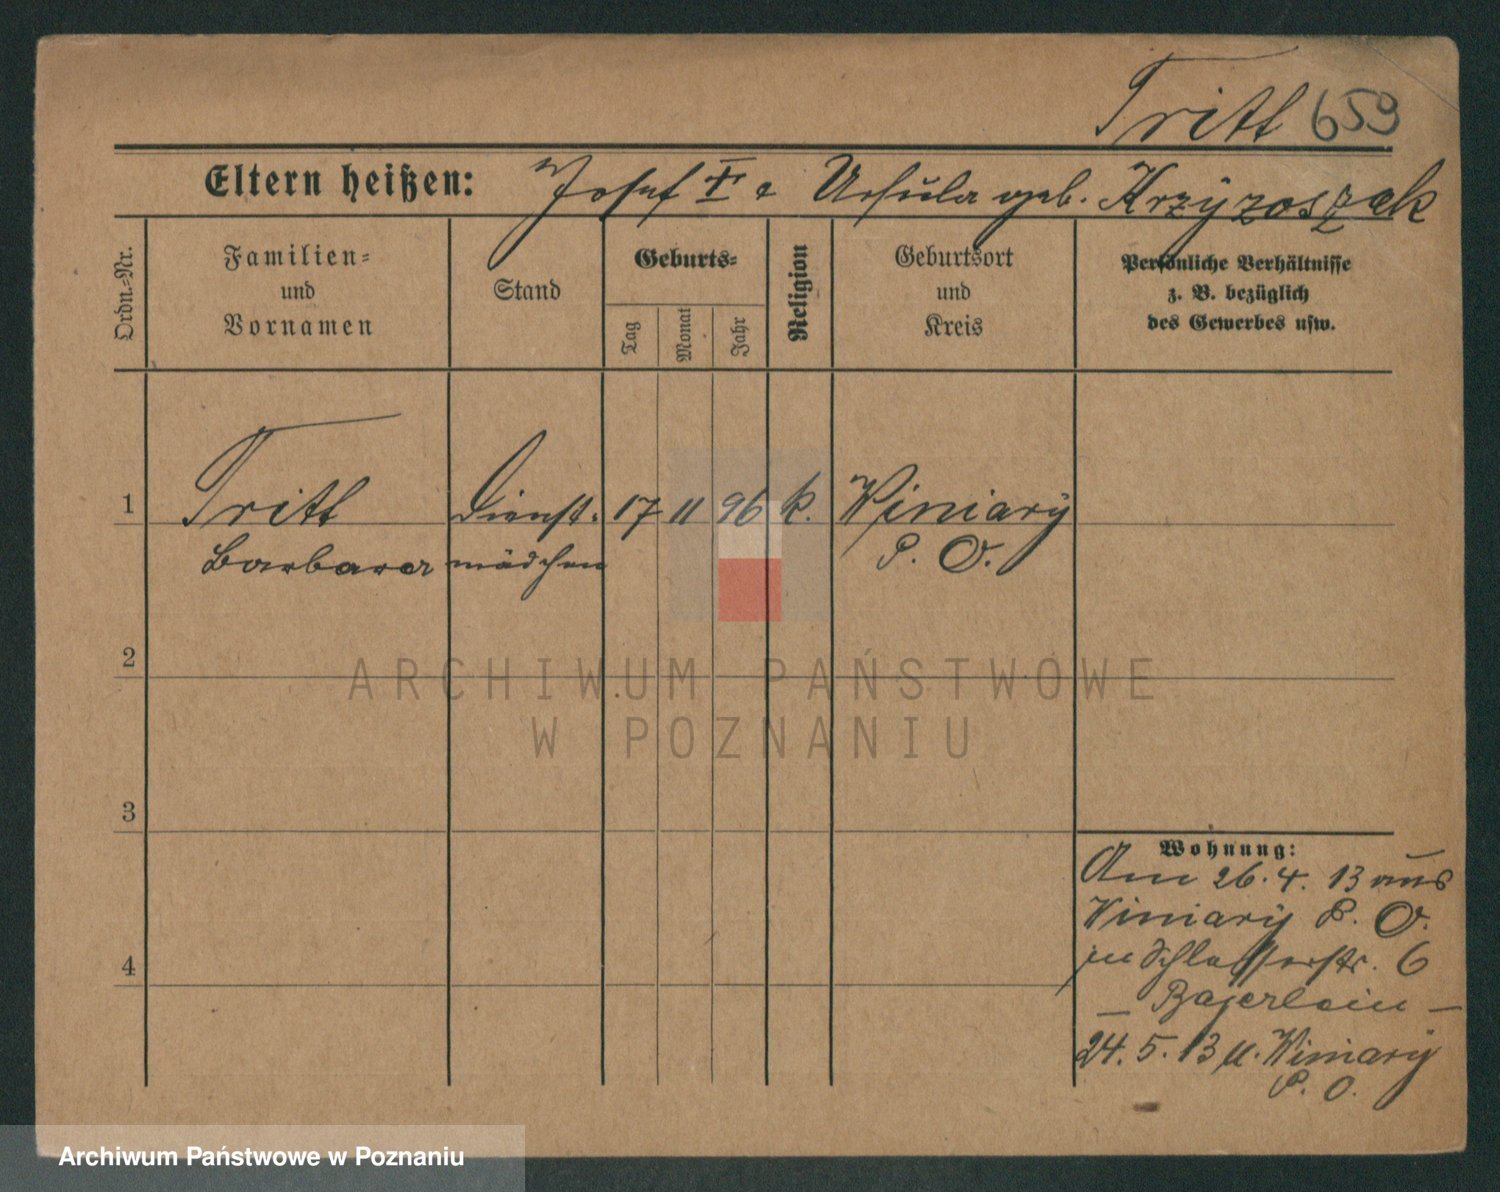 Tritt 659
Eltern heißen: Josef T. & Ursula geb. Krzyżoszczak
Ordn.-Nr.
Familien-
und
Vornamen
Stand
Geburts-
Tag
Monat
Jahr
Religion
Geburtsort
und
Kreis
Persönliche Verhältnisse
z. B. bezüglich
des Gewerbes usw.
1 Tritt Dienst- 17 11 96 k. Winiary
Barbara mädchen P. O.
2
ARCHIWUM PAŃSTWOWE
W POZNANIU
3
4
Wohnung:
Am 26.4.13 aus
Winiary P. O.
in Schlosserstr. 6
— Bajerlein —
24.5.13 n. Winiary
P. O.
Archiwum Państwowe w Poznaniu